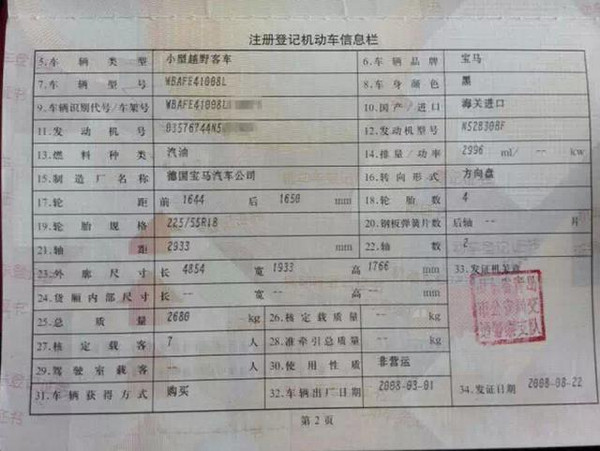 注册登记机动车信息栏
5.车辆类型 小型越野客车 6.车辆品牌 宝马
7.车辆型号 WBAFE41098L 8.车身颜色 黑
9.车辆识别代号/车架号 WBAFE41098L 10.国产/进口 海关进口
11.发动机号 03576744N5 12.发动机型号 N52B30BF
13.燃料种类 汽油 14.排量/功率 2996 ml/ -- kw
15.制造厂名称 德国宝马汽车公司 16.转向形式 方向盘
17.轮距 前 1644 后 1650 mm 18.轮胎数 4
19.轮胎规格 225/55R18 20.钢板弹簧片数 后轴 -- 片
21.轴距 2933 mm 22.轴数 2
23.外廓尺寸 长 4854 宽 1933 高 1766 mm 33.发证机关章
24.货厢内部尺寸 长 -- 宽 -- 高 -- mm
25.总质量 2680 kg 26.核定载质量 -- kg
27.核定载客 7 人 28.准牵引总质量 -- kg
29.驾驶室载客 -- 人 30.使用性质 非营运
31.车辆获得方式 购买 32.车辆出厂日期 2008-03-01 34.发证日期 2008-08-22
第2页